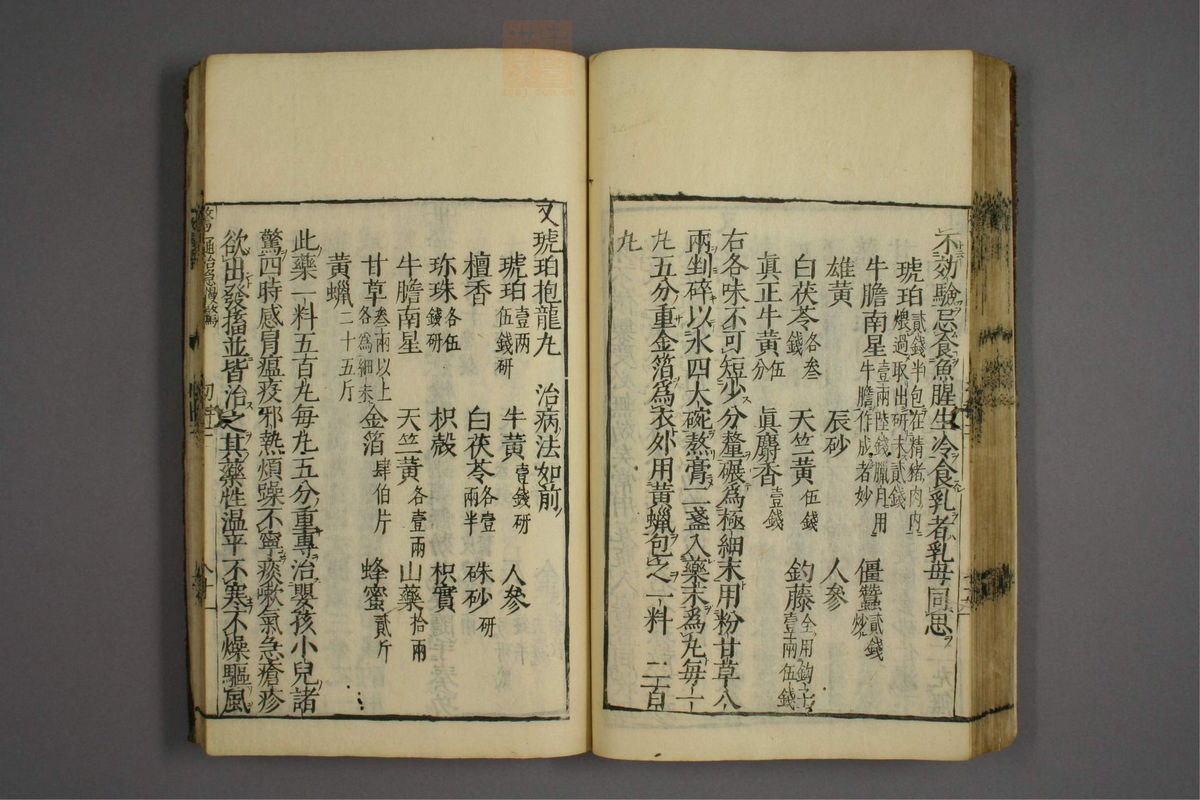 不効驗忌食魚腥生冷食乳者乳母同忌
琥珀貳錢半包在精猪肉内煨過取出研末貳錢
牛膽南星壹兩陸錢臘月用牛膽作成者妙 僵蠶貳錢炒
雄黄 辰砂 人參
白茯苓各叁錢 天竺黄伍錢 釣藤全用鈎子壹兩伍錢
眞正牛黄伍分 眞麝香壹錢
右各味不可短少分釐碾爲極細末用粉甘草八
兩剉碎以水四大碗熬膏二盞入藥末爲丸毎一
丸五分重金箔爲衣外用黄蠟包之一料 二百
丸
又琥珀抱龍丸 治病法如前
琥珀壹两伍錢研 牛黄壹錢研 人參
檀香 白茯苓各壹兩半 硃砂研
珎珠各伍錢研 枳殻 枳實
牛膽南星 天竺黄各壹兩 山藥拾兩
甘草叁兩以上各爲細末 金箔肆伯片 蜂蜜貳斤
黄蠟二十五斤
此藥一料五百丸毎丸五分重專治嬰孩小兒諸
驚四時感冒瘟疫邪熱煩躁不寧痰嗽氣急瘡疹
欲出發搐並皆治之其藥性温平不寒不燥驅風